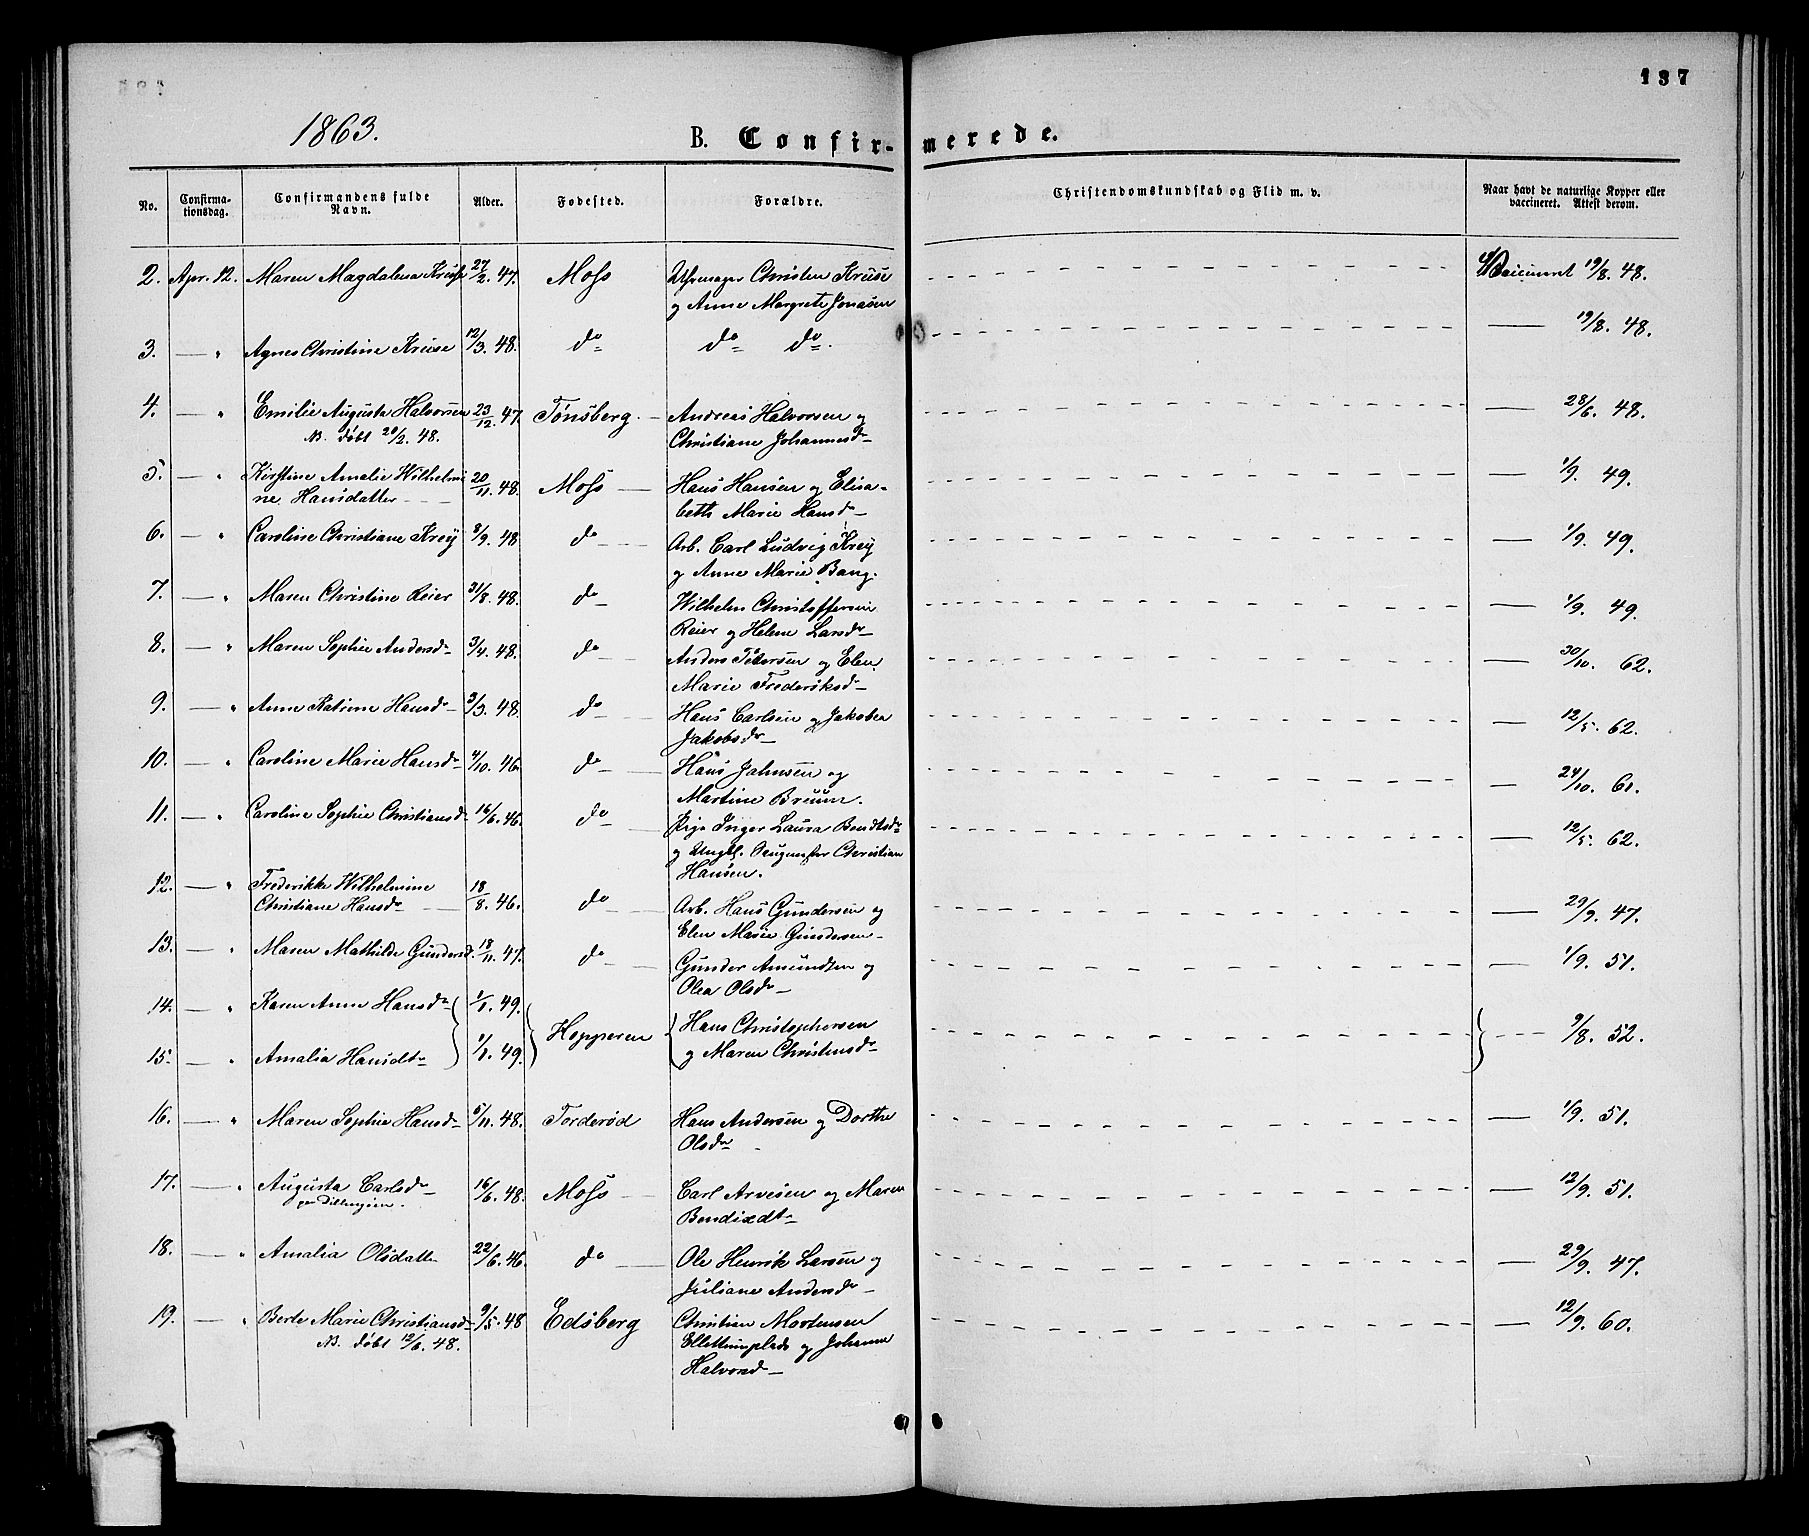 137
1863.
B. Confirmerede.
No. Confirmationsdag. Confirmandens fulde Navn. Alder. Fodested. Forældre. Christendomskundskab og Flid m. v. Naar havt de naturlige Kopper eller vaccineret. Attest derom.
2. Apr. 12. Maren Magdalena Kruse 27/2. 47. Moss Christen Kruse Vaccineret 19/8. 48.
og Anne Margrete Jonasen
3. — " Agnes Christine Kruse 12/3. 48. do do do. — 19/8. 48.
4. — " Emilie Augusta Halvorsen 23/12. 47. Tønsberg — Andreas Halvorsen og — 28/6. 48.
NB. døbt 20/2. 48. Christiane Johannesdr
5. — " Kirstine Amalie Wilhelmi 20/11. 48. Moss — Hans Hansen og Elisa- — 1/9. 49.
ne Hansdatter beth Marie Hansdr
6. — " Caroline Christiane Krey 8/9. 48 do Arb. Carl Ludvig Krey — 1/9. 49.
og Anne Marie Bang.
7. — " Maren Christine Reier 31/8. 48. do Wilhelm Christoffersen — 1/9. 49.
Reier og Helene Larsdr
8. — " Maren Sophie Andersdr 3/4. 48. do Anders Petersen og Elen — 30/10. 62.
Marie Frederiksdr
9. — " Anne Katrine Hansdr 3/3. 48. do Hans Carlsen og Jakobea — 12/5. 62.
Jakobsdr
10. — " Caroline Marie Hansdr 4/10. 46. do Hans Johnsen og — 24/10. 61.
Martine Bruun.
11. — " Caroline Sophie Christiansdr 16/6. 46. do Pige Inger Laura Bendtsdr — 12/5. 62.
og Ungk. Christian
Hansen.
12. — " Frederikke Wilhelmine
Christiane Hansdr 18/8. 46. do Arb. Hans Gundersen og — 29/9. 47.
Elen Marie Gundersen
13. — " Maren Mathilde Gundersd. 18/11. 47. do Gunder Amundsen og — 1/9. 51.
Olea Olsdr
14. — " Karen Anne Hansdr 1/1. 49. Hopperen Hans Christophersen — 9/8. 52.
15. — " Amalia Hansdtr 1/1. 49. og Maren Christensdr
16. — " Maren Sophie Hansdr 5/11. 48. Torderød Hans Andersen og Dorthe — 1/9. 51.
Olsdr
17. — " Augusta Carlsdr 16/6. 48. Moss — Carl Arvesen og Maren — 12/9. 51.
Bendixdtr
18. — " Amalia Olsdatter 22/6. 46. do Ole Henrik Larsen og — 29/9. 47.
Juliane Andersdr
19. — " Berte Marie Christiansdr 9/5. 48 Edsberg Christian Mortensen — 12/9. 60.
NB. døbt 12/6. 48. og Johanne
Halvorsdr